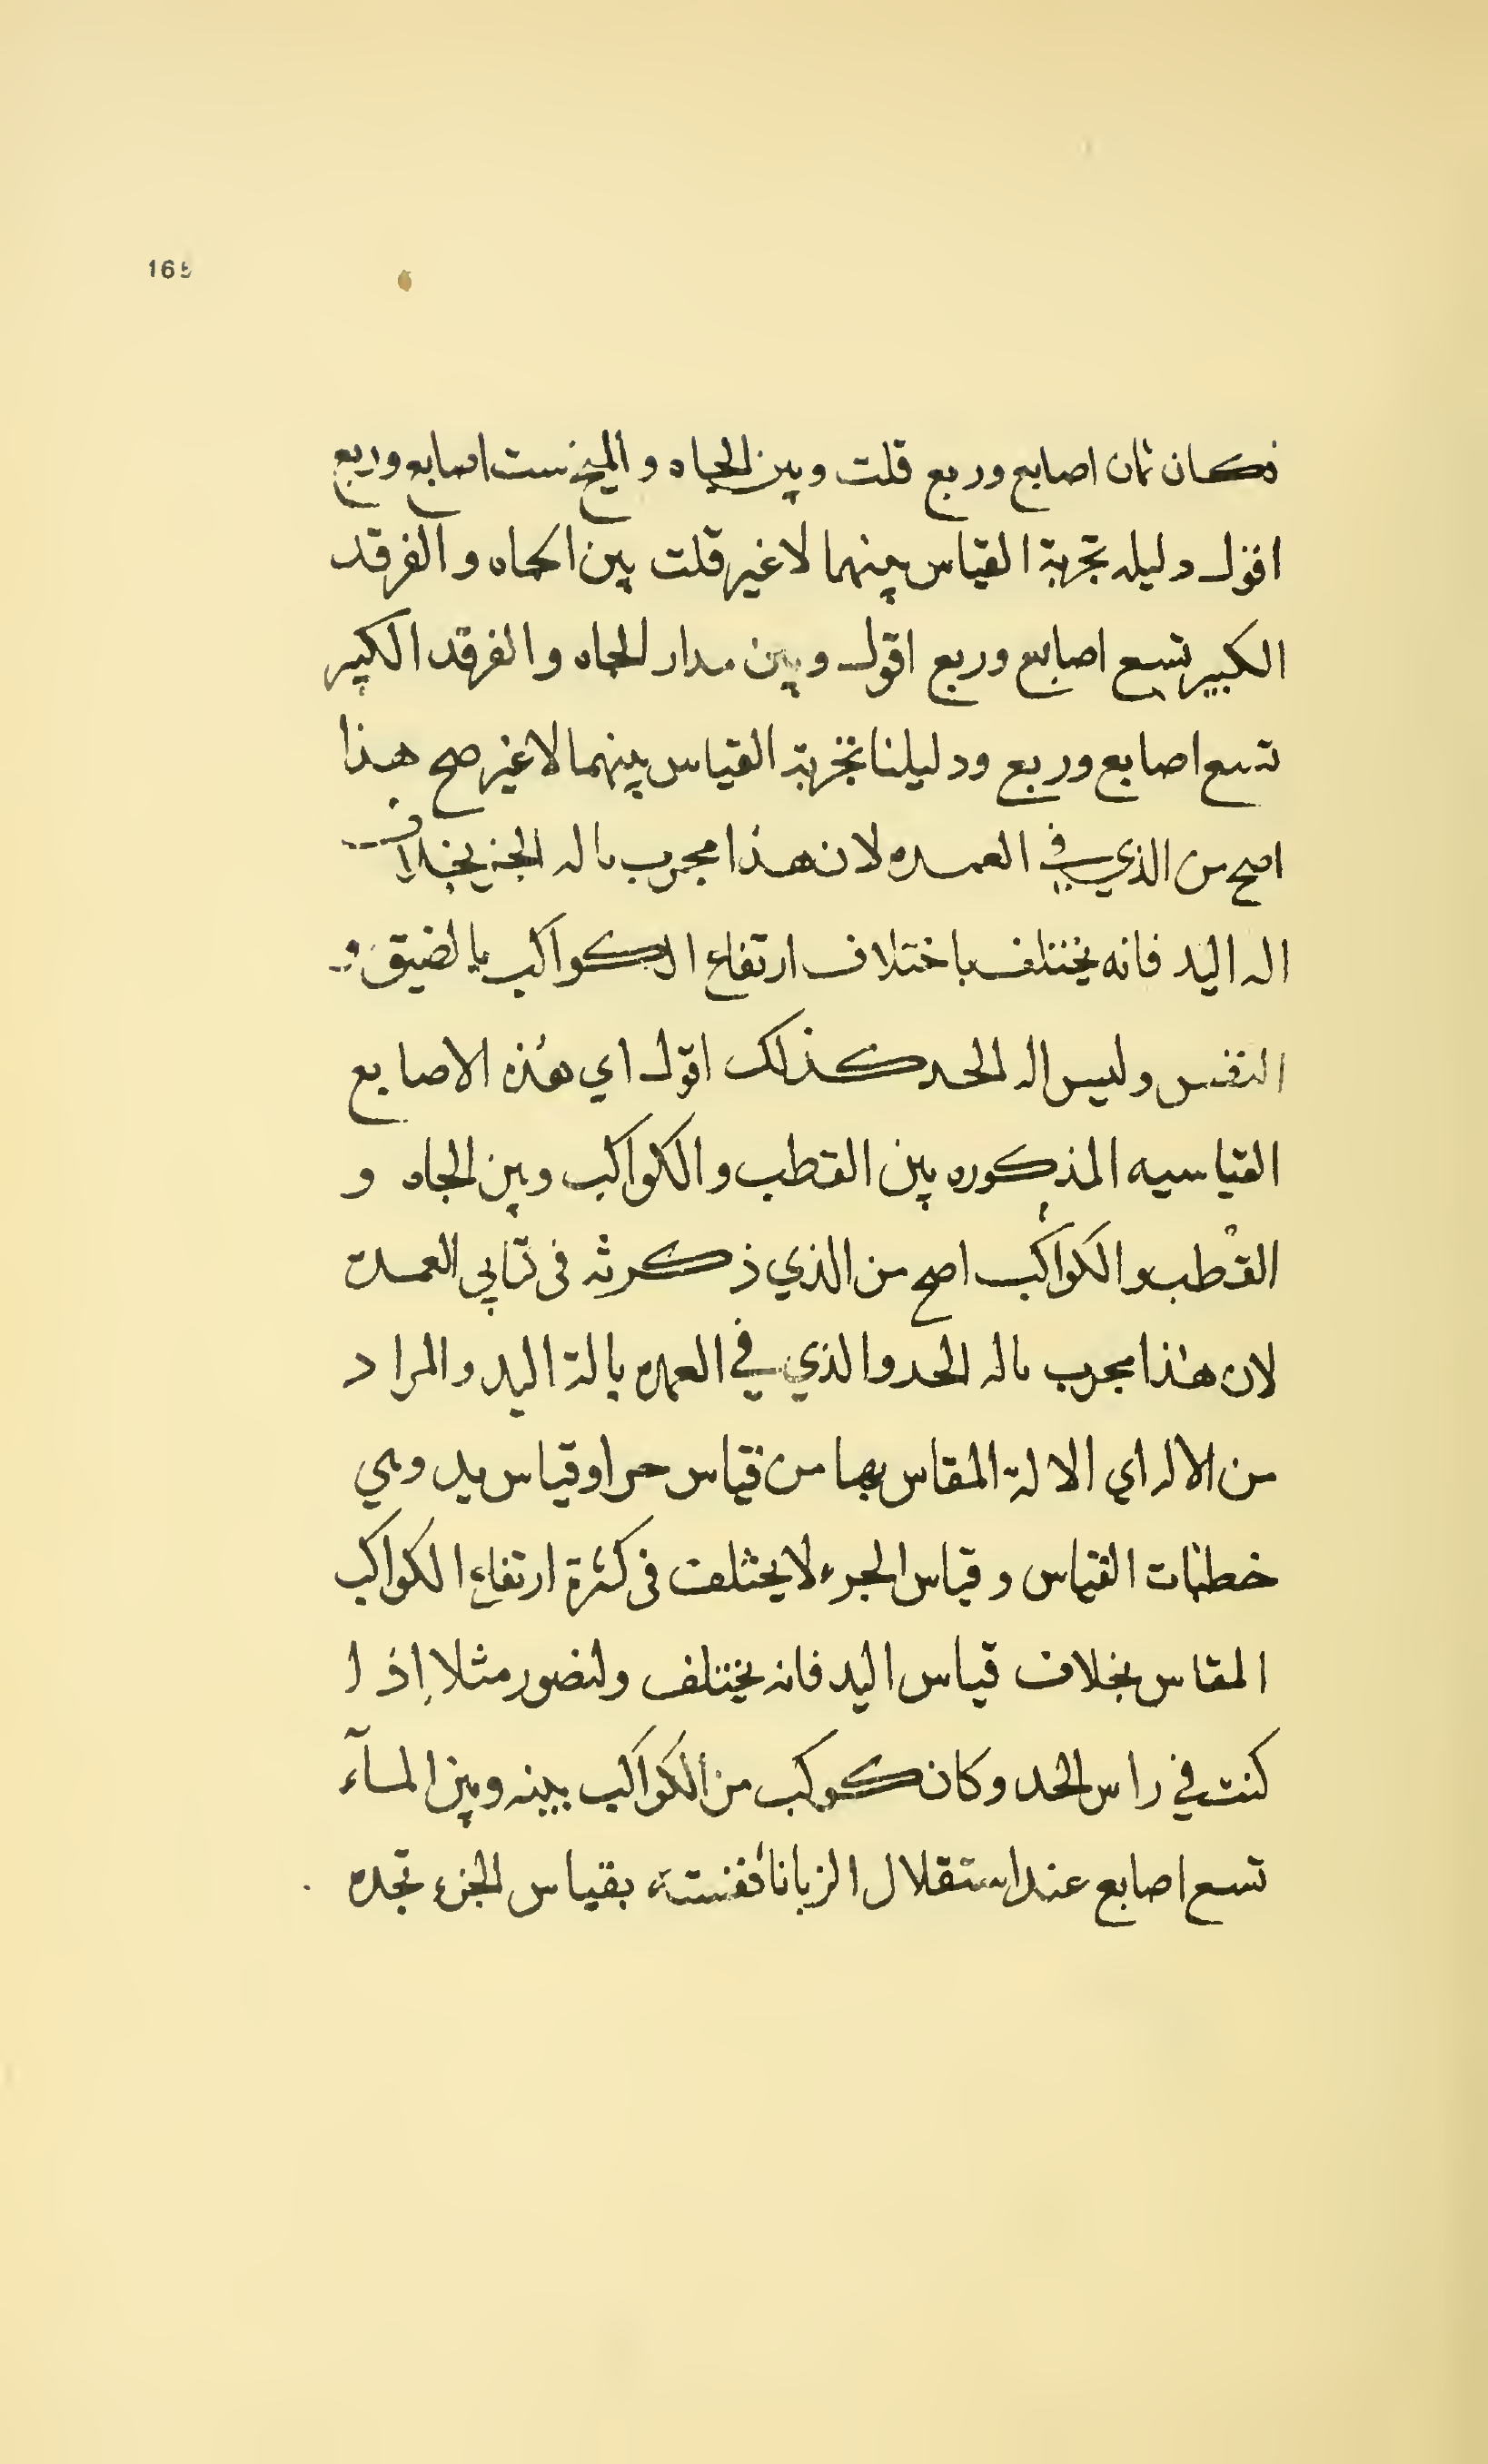 165
فكان ثمان اصابع وربع قلت وبين الجاه والميخ ست اصابع وربع
اقول دليله تجربة القياس بينهما لا غير قلت بين الجاه والفرقد
الكبير تسع اصابع وربع اقول وبين مدار الجاه والفرقد الكبير
تسع اصابع وربع ودليلنا تجربة القياس بينهما لا غير صح هذا
اصح من الذي في العمده لان هذا مجرب باله بخلاف
اله اليد فانه يختلف باختلاف ارتفاع الكواكب بالضيق و
النفس وليس اله كذلك اقول اي هذه الاصابع
القياسيه المذكوره بين القطب والكواكب وبين الجاه و
القطب والكواكب اصح من الذي ذكرته في العمدة
لان هذا مجرب باله والذي في العمده بالة اليد والمراد
من الاله اي الالة المقاس بها من قياس او قياس يد وهي
القياس وقياس لا يختلف في كثرة ارتفاع الكواكب
المقاس بخلاف قياس اليد فانه يختلف ولنصور مثلا إذا
كنت في راس الحد وكان كوكب من الكواكب بينه وبين المآء
تسع اصابع عند استقلال الزبانا بقياس تجده